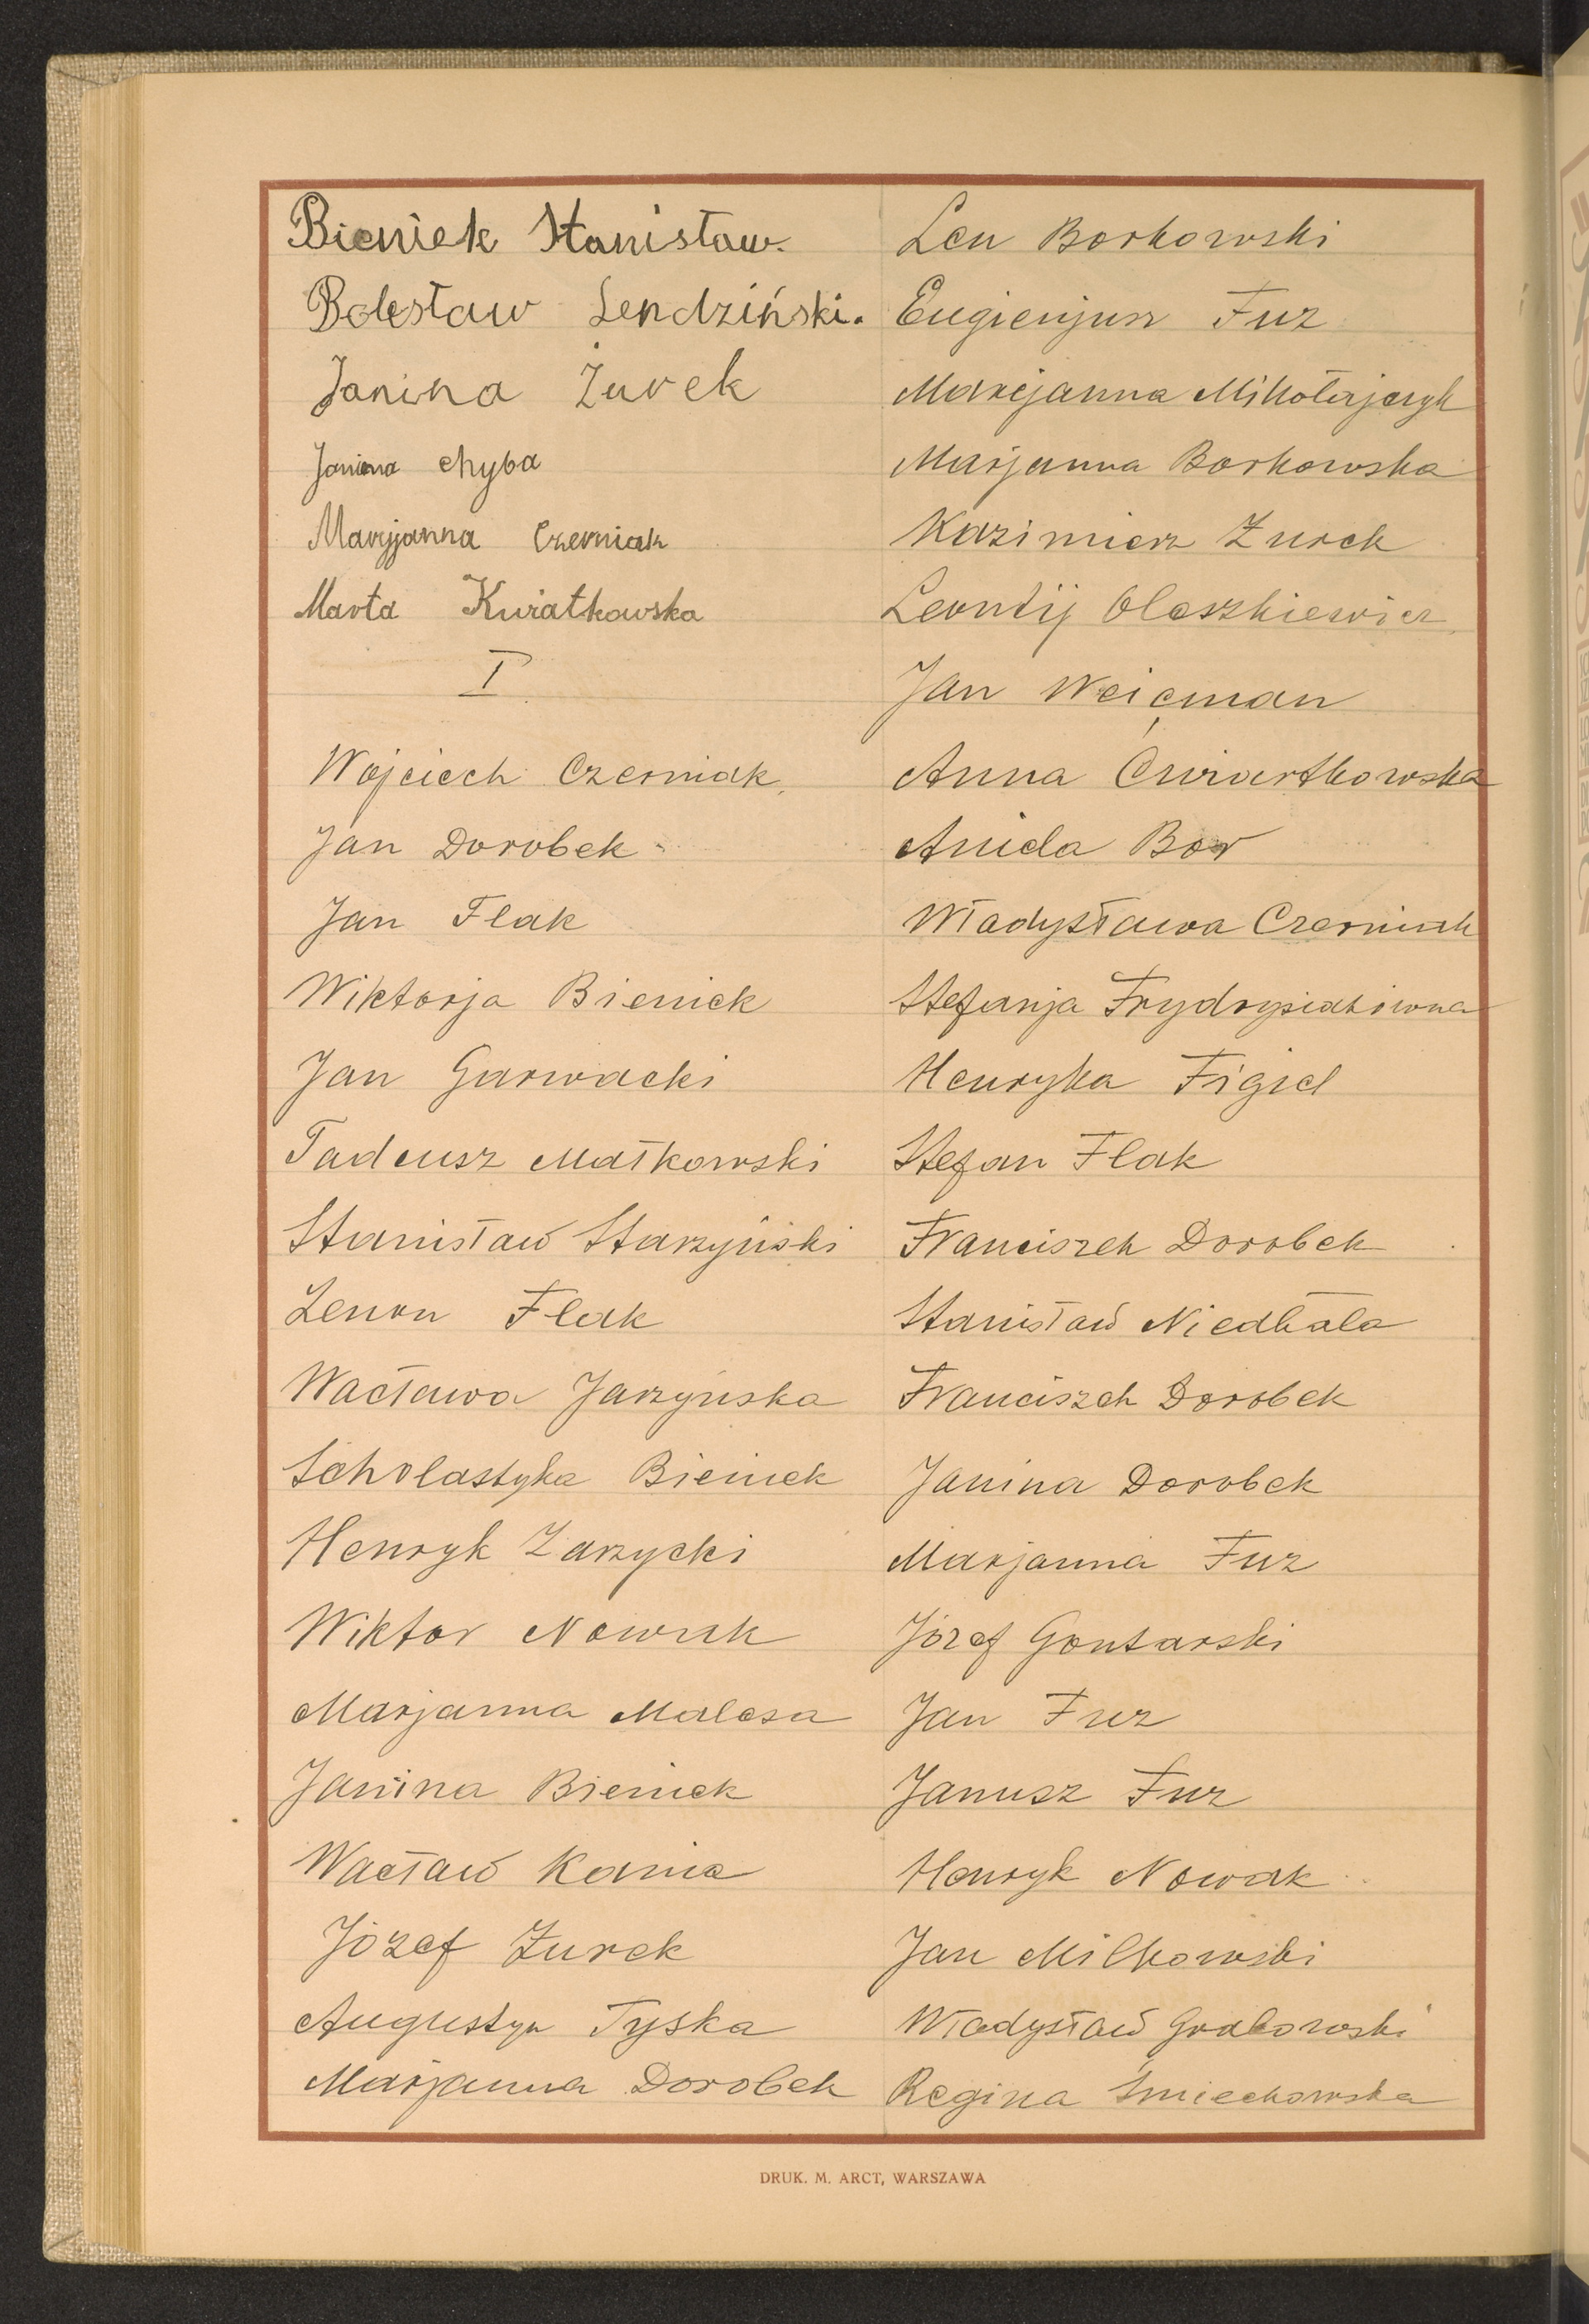 Bieniek Stanisław.
Bolesław Lendziński.
Janina Żurek
Janina chyba
Maryjanna Czerniak
Marta Kwiatkowska
I
Wojciech Czerniak,
Jan Dorobek
Jan Flak
Wiktorja Bieniek
Jan Garwacki
Tadeusz Małkowski
Stanisław Starzyński
Zenon Flak
Wacława Jarzyńska
Scholastyka Bieniek
Henryk Zarzycki
Wiktor Nowak
Marjanna Malesa
Janina Bieniek
Wacław Kania
Józef Żurek
Augustyn Tyska
Marjanna Dorobek
Leu Borkowski
Eugienjusz Fuz
Maryjanna Mikołajczyk
Marjanna Borkowska
Kazimierz Żurek
Leontij Oleszkiewicz
Jan Weicman
Anna Ćwiartkowska
Anida Bor
Władysława Czerniak
Stefanja Frydrysiakówna
Henryka Figiel
Stefan Flak
Franciszek Dorobek
Stanisław Niedbała
Franciszek Dorobek
Janina Dorobek
Marjanna Fuz
Józef Gontarski
Jan Fuz
Janusz Fuz
Henryk Nowak
Jan Milkowski
Władysław Grabowski
Regina Śmiechowska
DRUK. M. ARCT, WARSZAWA